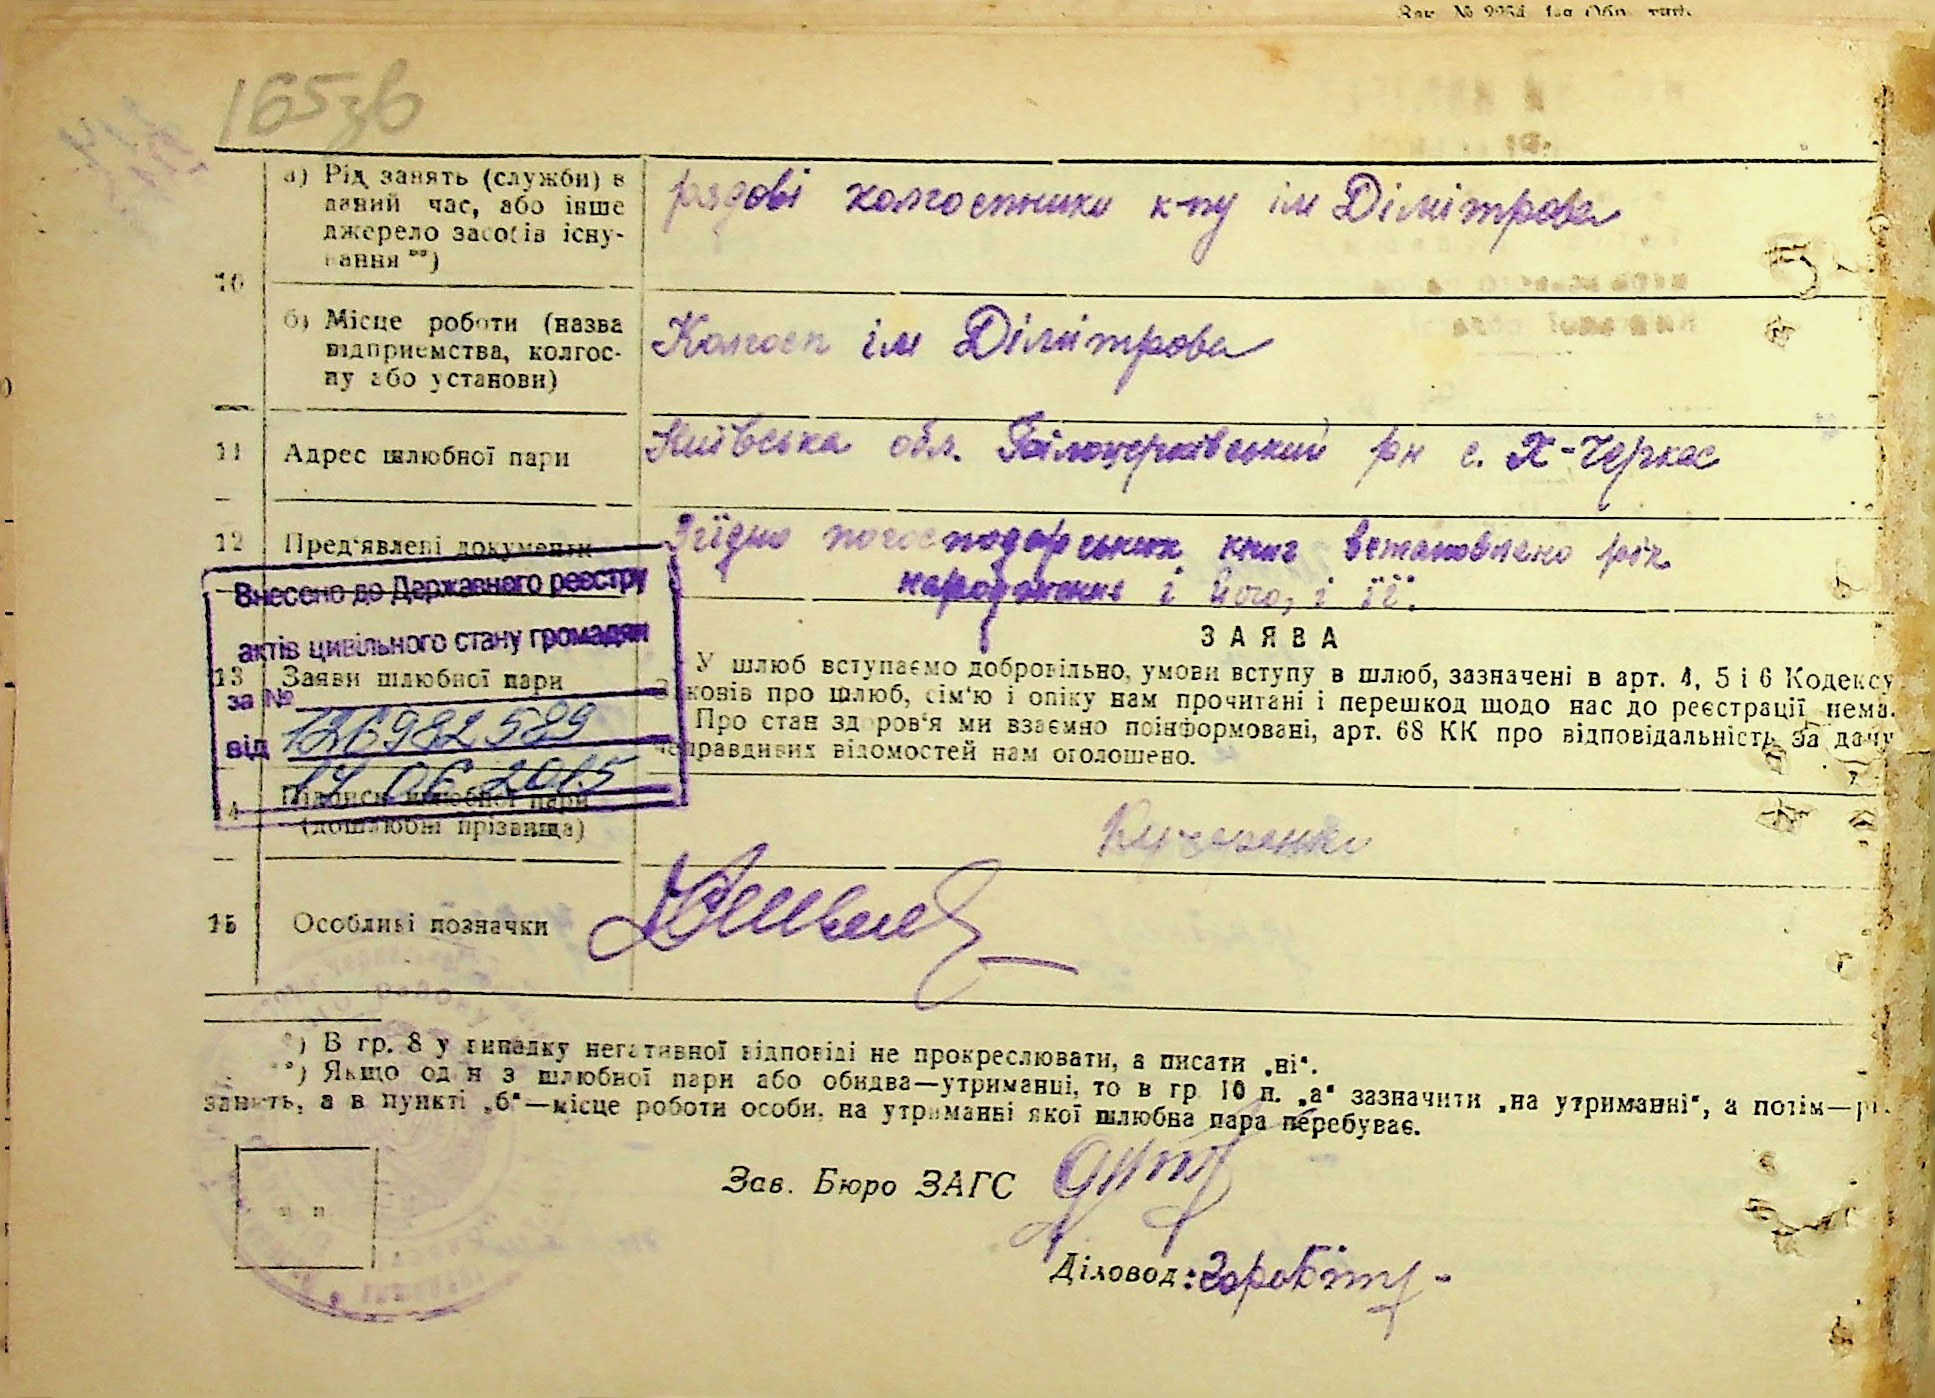 Зак. № 2254. 1-ша Обл. тип.
165зв
а) Рід занять (служби) в
даний час, або інше
джерело засобів існу-
вання **)
рядові колгоспники к-пу ім Дімітрова
10
б) Місце роботи (назва
підприємства, колгос-
пу або установи)
Колгосп ім Дімітрова
11 Адрес шлюбної пари
Київська обл. Білоцерківський рн с. Х-Черкас
12 Пред'явлені документи
Згідно погосподарських книг встановлено рік
народження і його, і її.
Внесено до Державного реєстру
актів цивільного стану громадян
за № 126982589
від 17 06.2015
13 Заяви шлюбної пари
ЗАЯВА
У шлюб вступаємо добровільно, умови вступу в шлюб, зазначені в арт. 4, 5 і 6 Кодексу
Законів про шлюб, сім'ю і опіку нам прочитані і перешкод щодо нас до реєстрації нема.
Про стан здоров'я ми взаємно поінформовані, арт. 68 КК про відповідальність за дачу
неправдивих відомостей нам оголошено.
14 Підписи шлюбної пари
(дошлюбні прізвища)
15 Особливі позначки
*) В гр. 8 у випадку негативної відповіді не прокреслювати, а писати „ні“.
**) Якщо один з шлюбної пари або обидва—утриманці, то в гр. 10 п. „а“ зазначити „на утриманні“, а потім—рід
занять, а в пункті „б“—місце роботи особи, на утриманні якої шлюбна пара перебуває.
Зав. Бюро ЗАГС
м п.
Діловод: